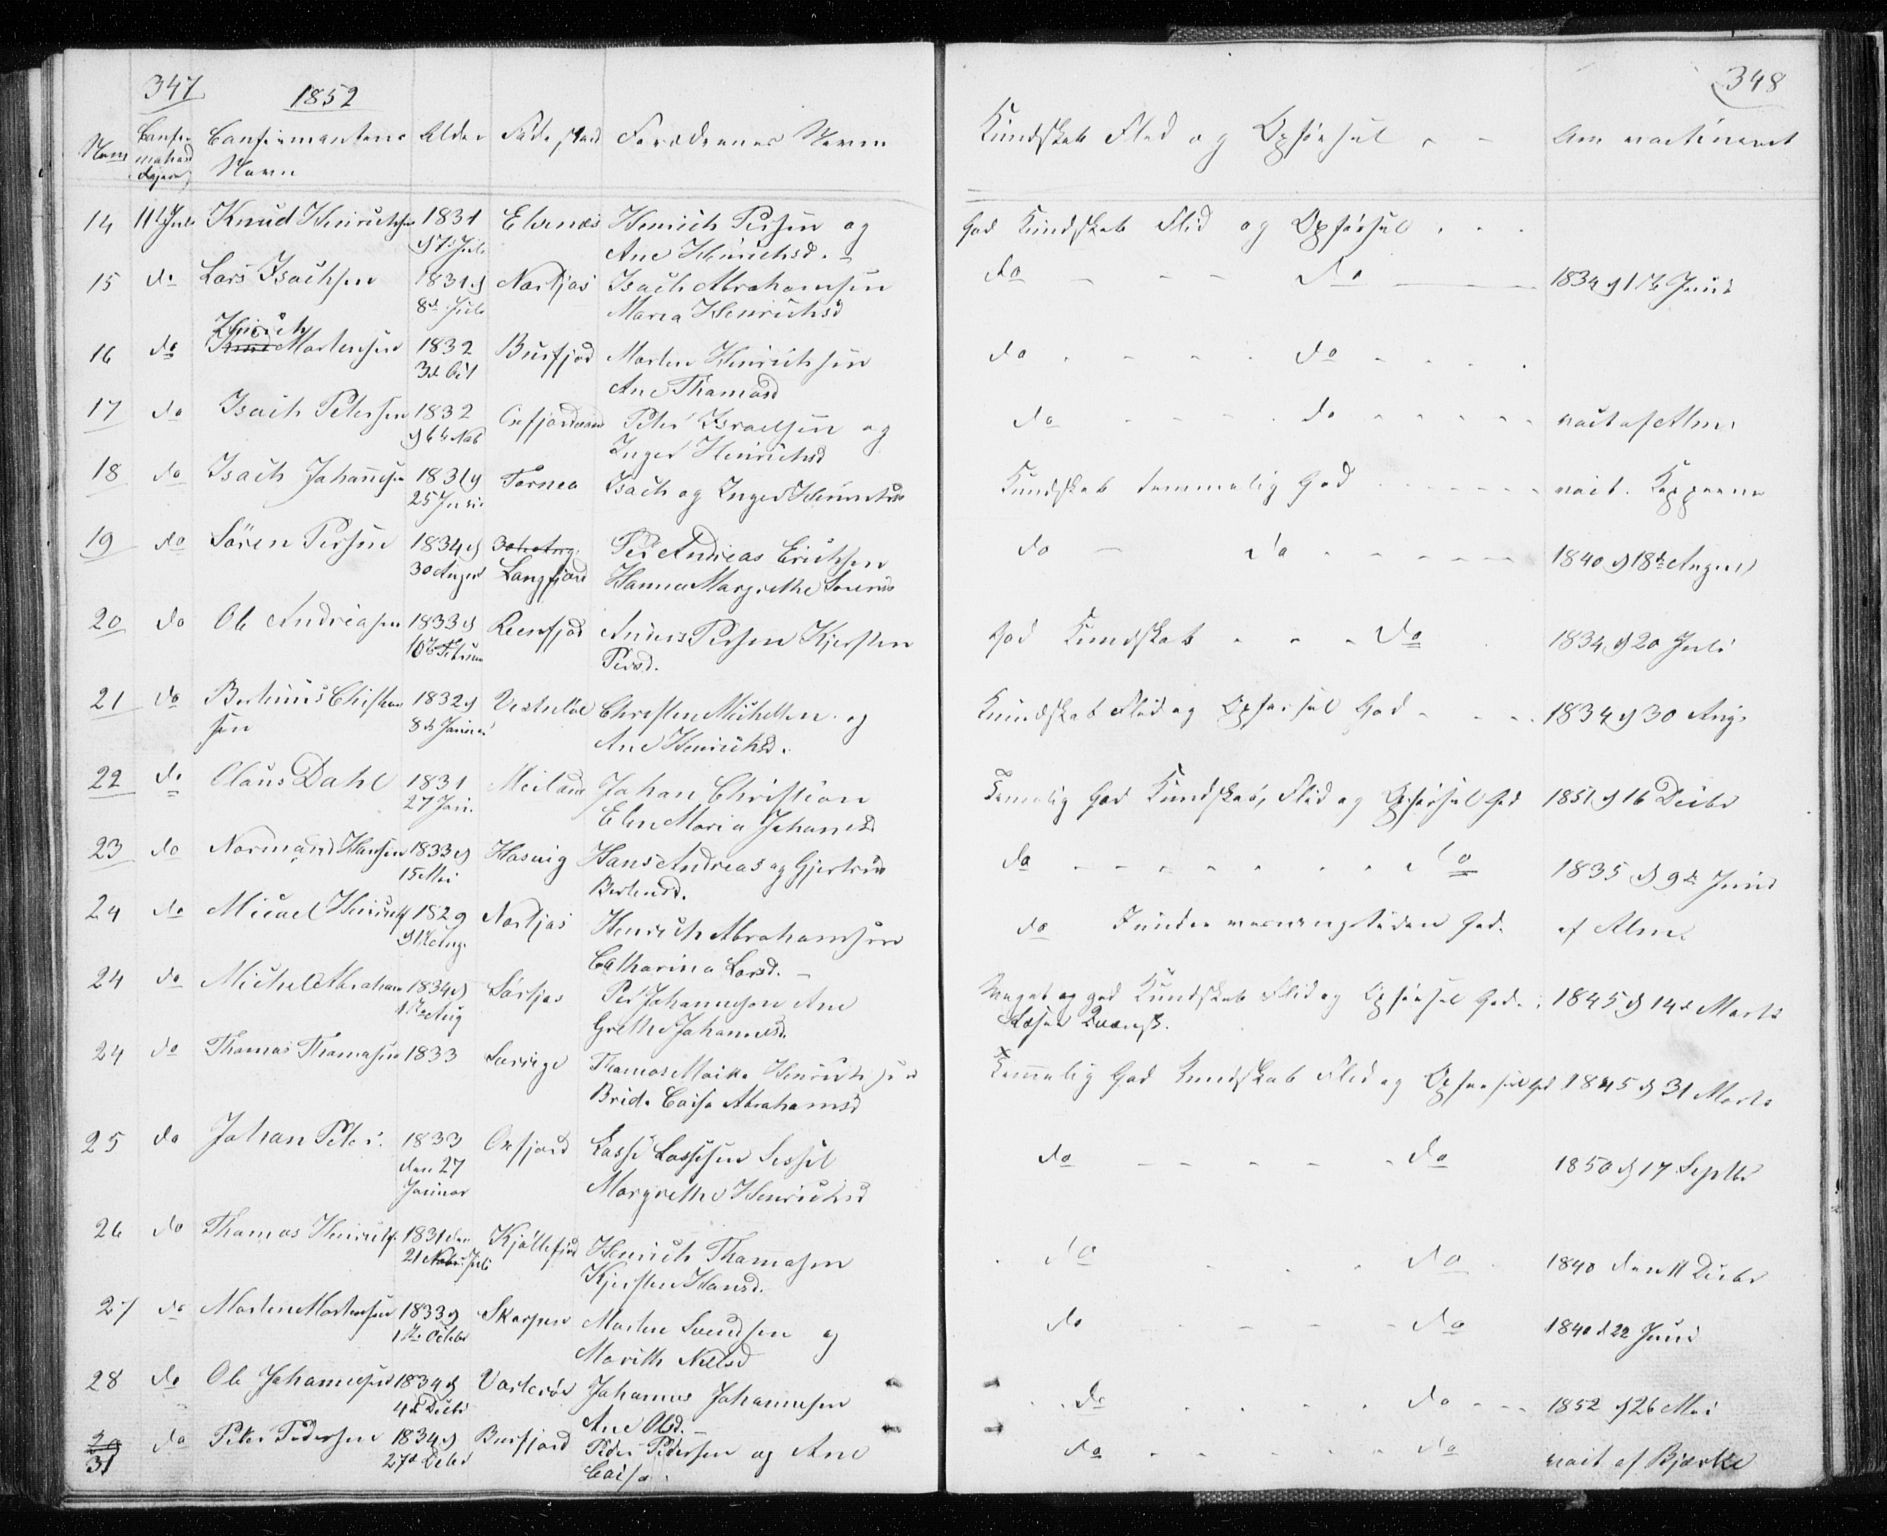 347
1852
Num Confirmations dagen Confirmantens Navn Alder Fødested Forældrenes Navn
14 11 Juli Knud Henrichsen 1831 Elvenæs Henrich Persen og
d 7 Juli Ane Henrichsd.
15 do Lars Isachsen 1831 d Isach Abrahamsen
8de Juli Maria Henrichsd
Henrich
16 do Mortensen 1832 Burfjord Morten Henrichsen
3de Oct Ane Thomasd
17 do Isach Petersen 1832 Peter Israelsen og
d 6te Nob Inger Henrichsd
18 do Isach Johannesen 1831 d Tornea Isach og Inger
25 Juni
19 do Sören Persen 1834 d Per Andreas Erichsen
30 August Langfjord Hanna Margrethe
20 do Ole Andreasen 1833 d Persen Kjersten
16 Februar Persd.
21 do Berhinus Christen 1832 d Christen Michelsen og
sen 8de Januar Ane Henrichsd.
22 do Olaus Dahl 1831 Johan Christian
27 Jan. Elen Maria Johannesd
23 do Normand Hansen 1833 d Hasvig Hans Andreas og Gjertrud
15 Mai
24 do Micael Henrichs 1829 Henrich Abrahamsen
Catharina Larsd.
24 do Michel Abraham 1834 d Per Johannesen Ane
Grethe Johannesd.
24 do Thomas Thomasen 1833 Thomas Henrichsen
Brida Caisa Abrahamsd
25 do Johan Peter. 1833 Lasse Lassesen Sessil
den 27 Margrethe Henrichsd
Januar
26 do Thomas Henrichs 1831 den Kjøllefjord Henrich Thomasen
21 Juli Kjersten Hansd.
27 do Morten Mortensen 1833 d Morten Svendsen og
1te Octobr Marith Nilsd
28 do Ole Johannesen 1834 d Johannes Johannesen
4de Decbr Ane Olsd.
31 do Peter Pedersen 1834 d Burfjord Peder Pedersen og Ane
27de Decbr Caisa.
348
Kundskab Flid og Opførsel Om vaccineret
God Kundskab Flid og Opførsel
do do 1834 d 17de Juni
do do
do do vact af Alm.
Kundskab temmelig God vact.
do do 1840 d 18de August
God Kundskab do 1834 d 20 Juli
Kundskab Flid og Opførsel God 1834 d 30 Aug.
Temelig God Kundskab, Flid og Opførsel God 1851 d 16 Decbr
do do 1835 d 9de Juni
do God. af Alm.
Meget og god Kundskab Flid og Opførsel God. 1845 d 14de Marts
Læser Quænsk.
Temmelig God Kundskab Flid og Opførsel God 1845 d 31 Marts
do do 1850 d 17 Septbr
do do 1840 den 11 Decbr
do do 1840 d 22 Juni
do do 1852 d 26 Mai
do do vact af Bjerke